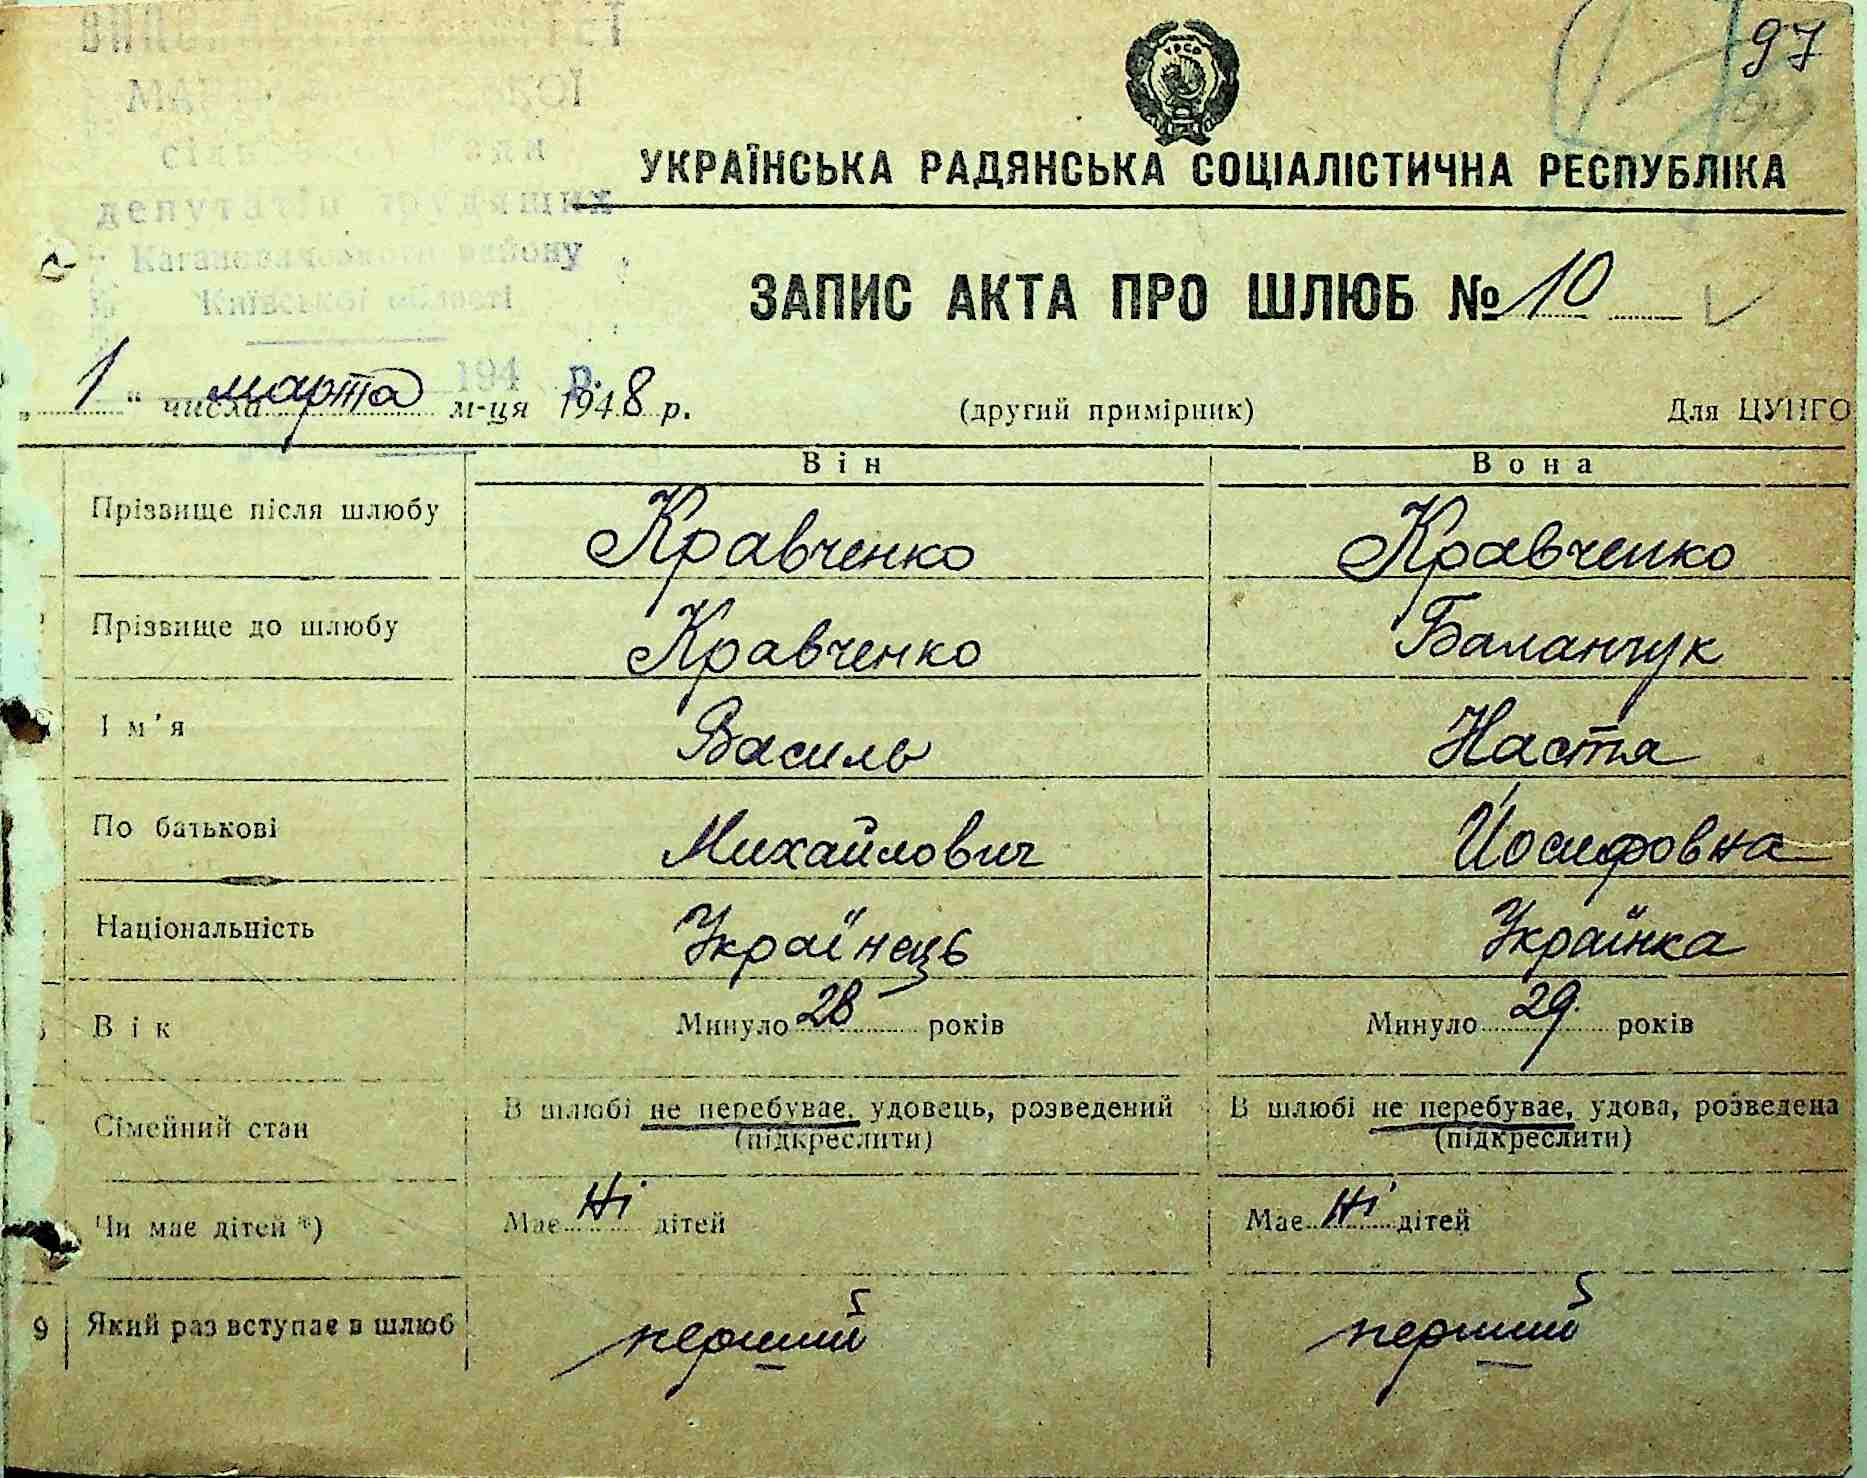 97
99
УРСР
УКРАЇНСЬКА РАДЯНСЬКА СОЦІАЛІСТИЧНА РЕСПУБЛІКА
депутатів трудящих
Кагановичського району
Київської області
194 р.
ЗАПИС АКТА ПРО ШЛЮБ № 10
„ 1 “ числа марта м-ця 1948 р. (другий примірник) Для ЦУНГО
Він Вона
Прізвище після шлюбу Кравченко Кравченко
Прізвище до шлюбу Кравченко Баланчук
Ім'я Василь Настя
По батькові Михайлович Йосифовна
Національність Українець Українка
Вік Минуло 28 років Минуло 29 років
Сімейний стан В шлюбі не перебуває, удовець, розведений В шлюбі не перебуває, удова, розведена
(підкреслити) (підкреслити)
Чи має дітей *) Має Ні дітей Має Ні дітей
9 Який раз вступає в шлюб перший перший